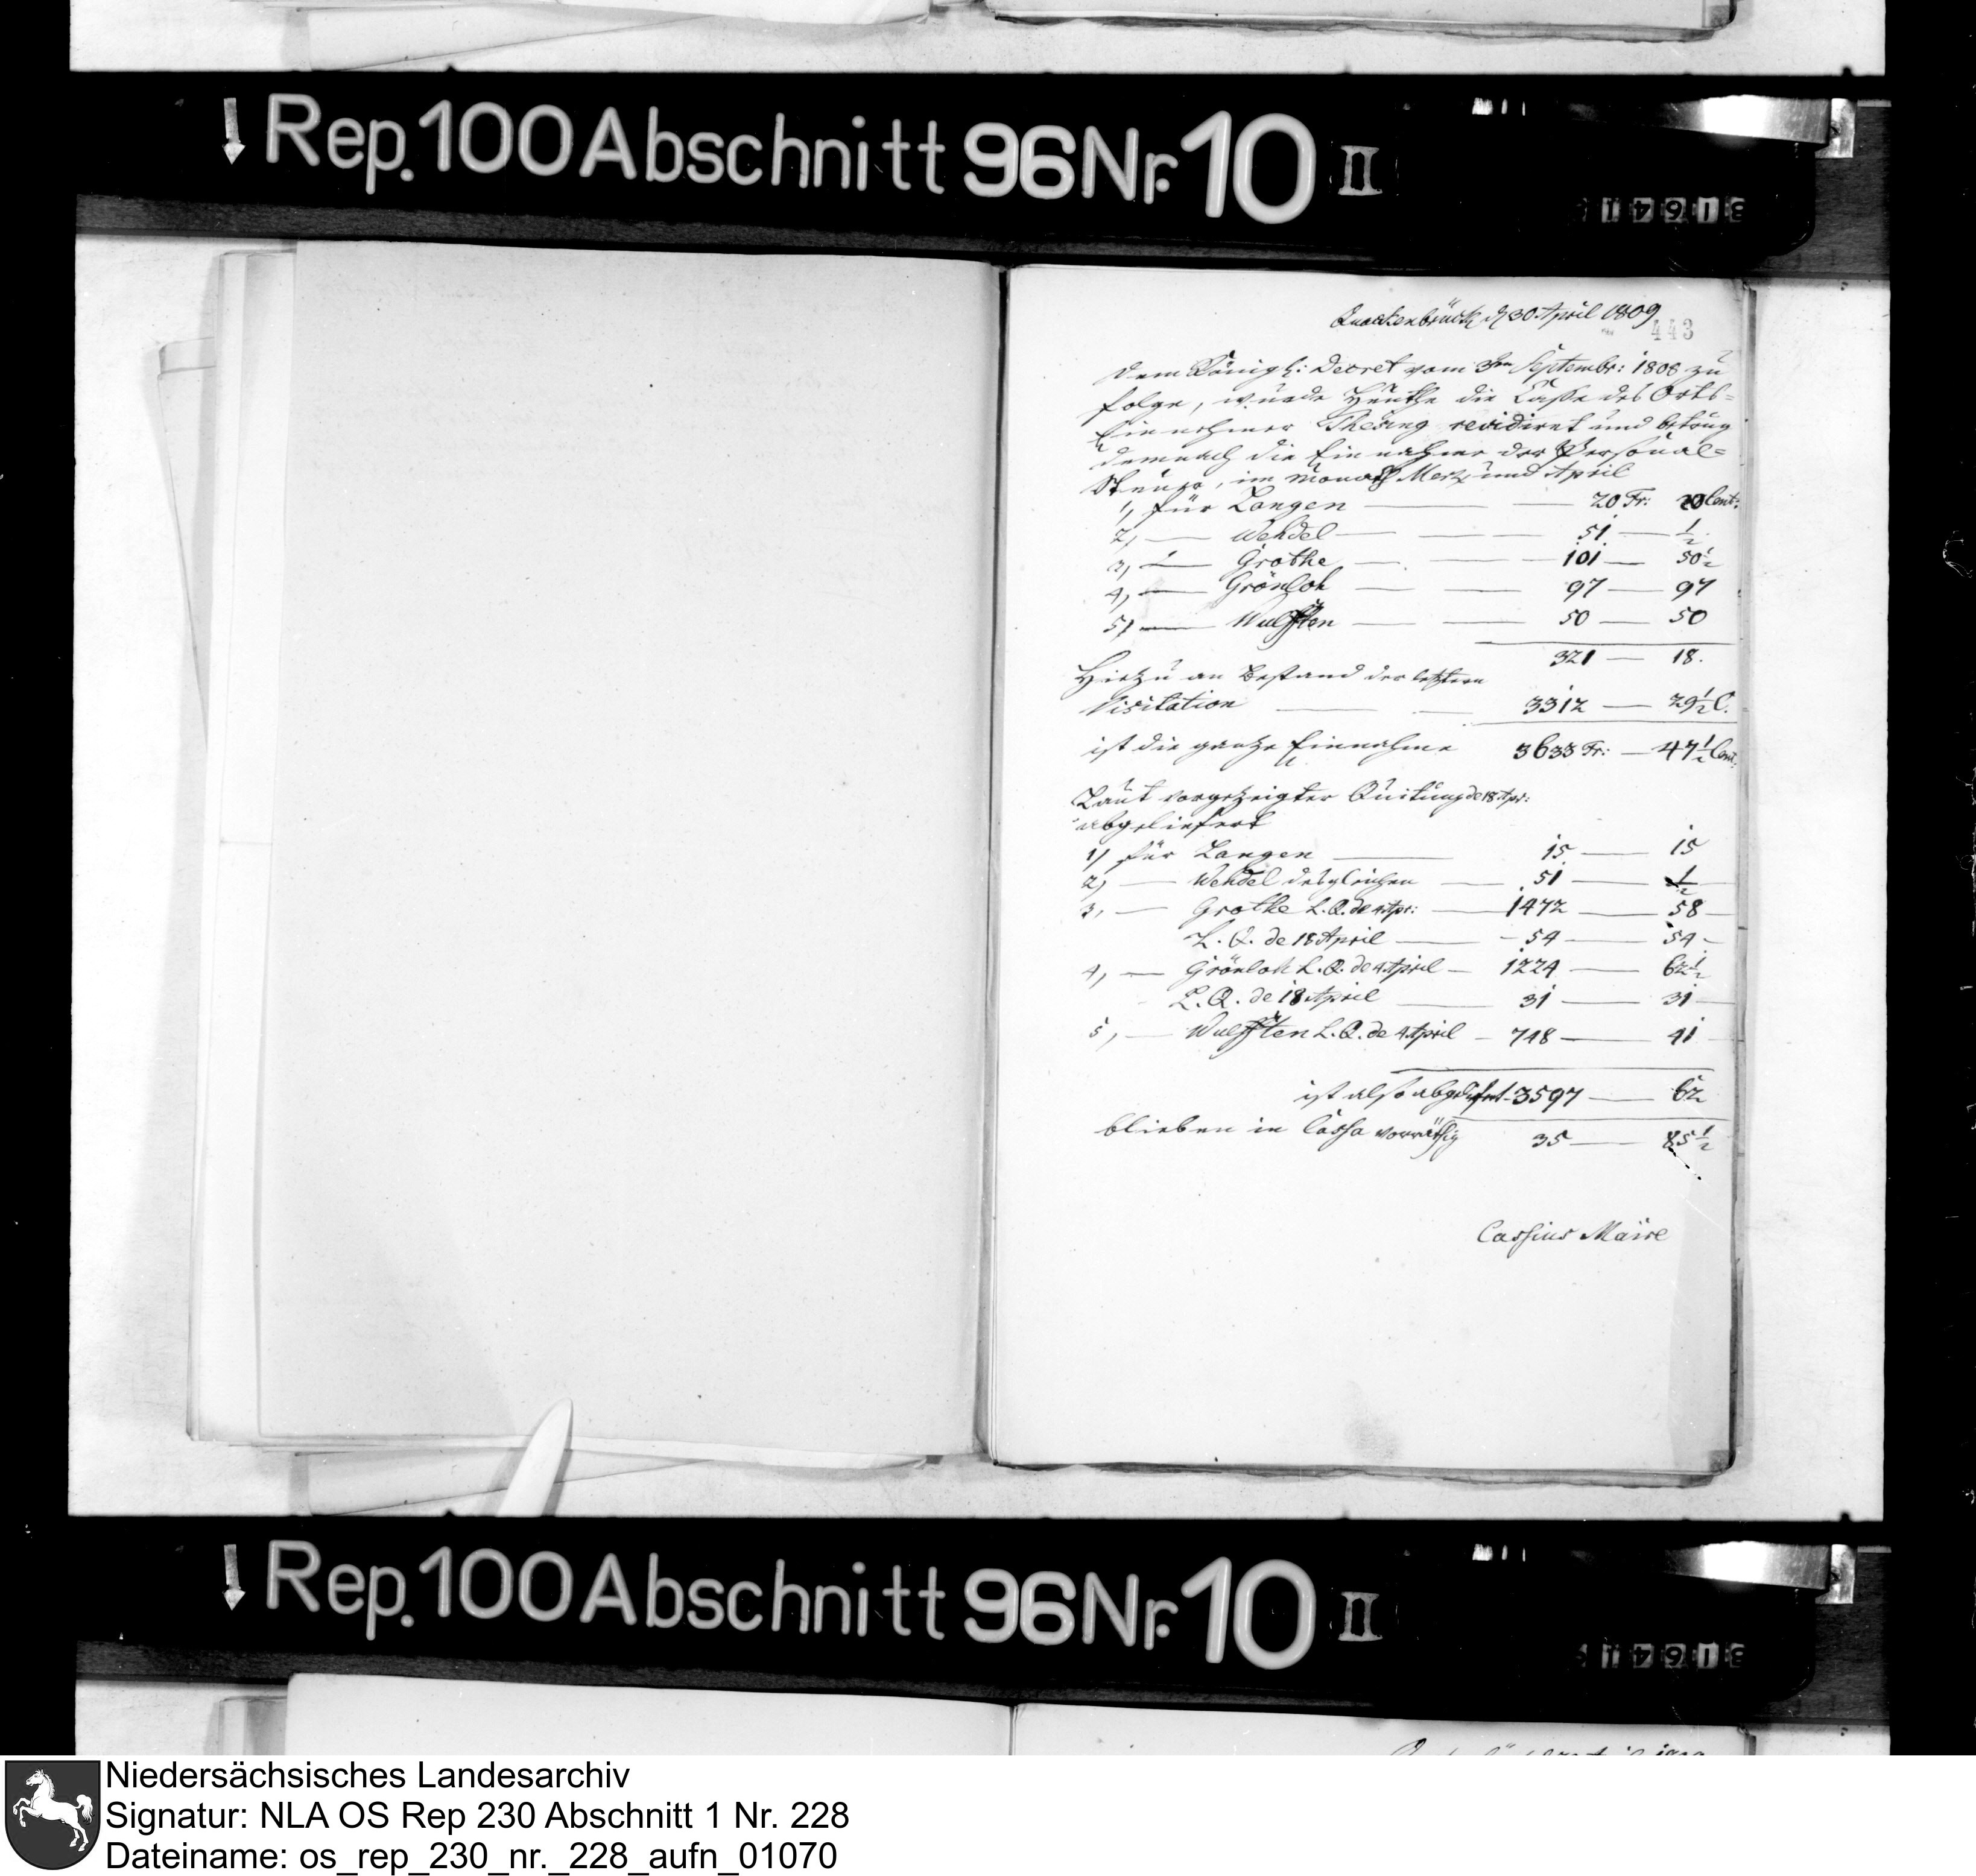 Rep. 100 Abschnitt 96 Nr. 10 II
31641
Quackenbrück d 30 April 1809
443
Dem Königl: Decret vom 3ten Septembr: 1808 zu
folge, wurde Heuthe die Casse des Orts-
Einnehmer Thesing revidiret und betrug
demnach die Einnahme der Personal-
Steuer, im Monath Mertz und April
1, für Langen — 20 Fr: 20 Cent:
2, — Wehdel — 51 — 1/2
3, — Grothe — 101 — 50 1/2
4, — Grönloh — 97 — 97
5, — Wulften — 50 — 50
321 — 18.
Hiezu an Bestand der letztern
Visitation — 3312 — 29 1/2 C.
ist die gantze Einnahme 3633 Fr: — 47 1/2 Cent:
Laut vorgezeigter Quitung de 18 Apr:
abgeliefert
1, für Langen — 15 — 15
2, — Wehdel desgleichen — 51 — 1/2
3, — Grothe L. Q. de 4 Apr: — 1472 — 58
L. Q. de 18 April — 54 — 54
4, — Grönloh L. Q. de 4 April — 1224 — 62 1/2
L. Q. de 18 April — 31 — 31
5, — Wulften L. Q. de 4 April — 748 — 41
ist also abgeliefert 3597 — 62
blieben in Cassa vorräthig 35 — 85 1/2
Cassius Maire
Rep. 100 Abschnitt 96 Nr. 10 II
31641
Niedersächsisches Landesarchiv
Signatur: NLA OS Rep 230 Abschnitt 1 Nr. 228
Dateiname: os_rep_230_nr._228_aufn_01070